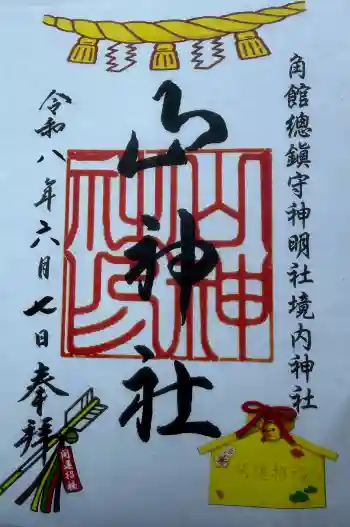 角館總鎮守神明社境内神社
山神社
令和八年六月七日 奉拝
山神
社印
開運招福
開運招福